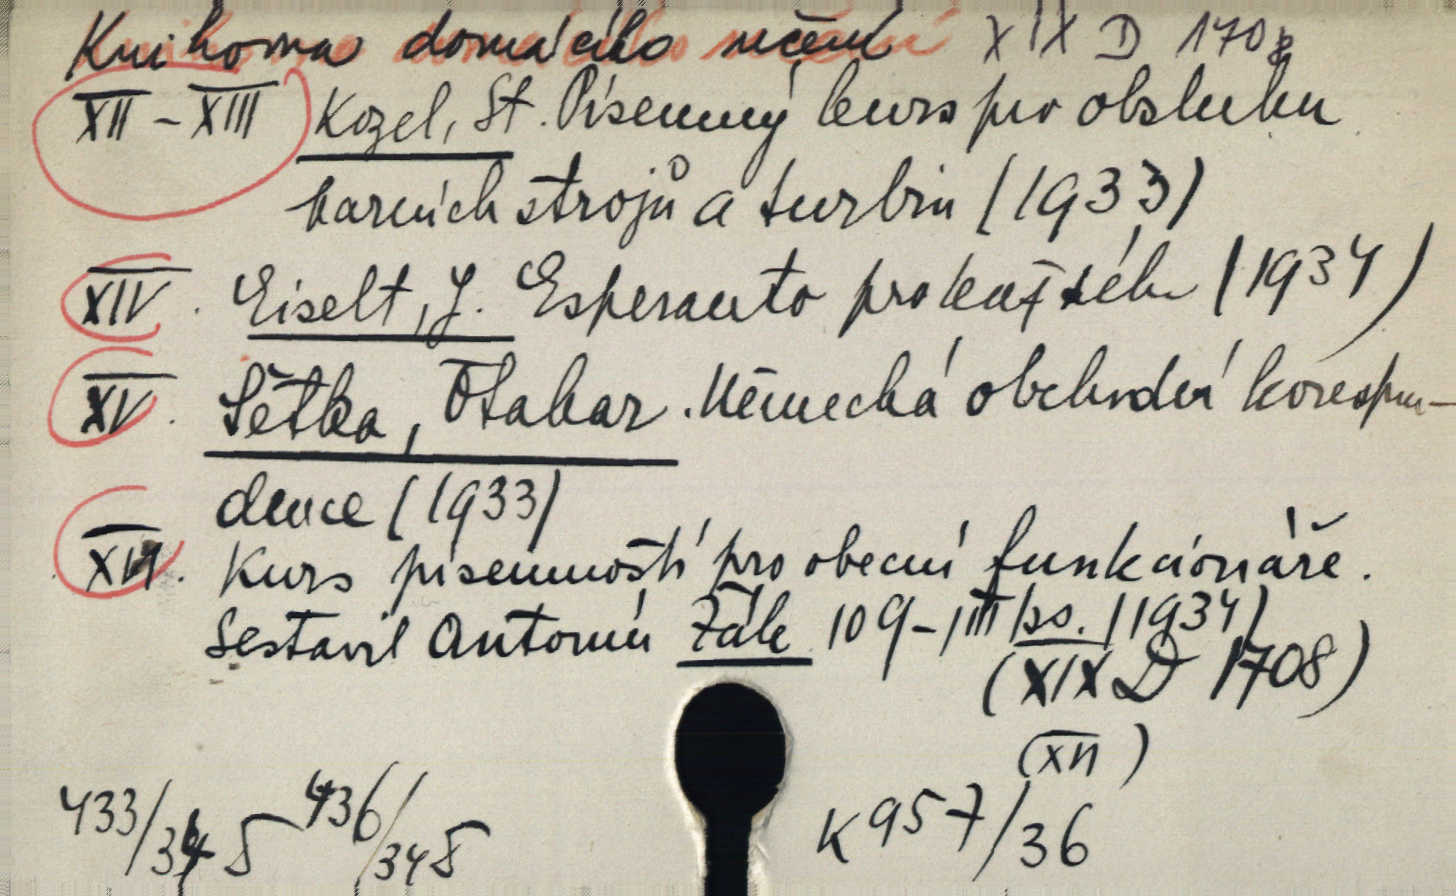 Knihovna domácího učení XIX D 1708
XII - XIII Kozel, St. Písemný kurs pro obsluhu
parních strojů a turbin (1933)
XIV. Eiselt, J. Esperanto pro každého (1934)
XV. Štětka, Otakar. Německá obchodní korespon-
dence (1933)
XVI. Kurs písemností pro obecní funkcionáře.
Sestavil Antonín Žák 109-111 ss. (1934)
(XIX D 1708)
433/34 436/34 K957/36